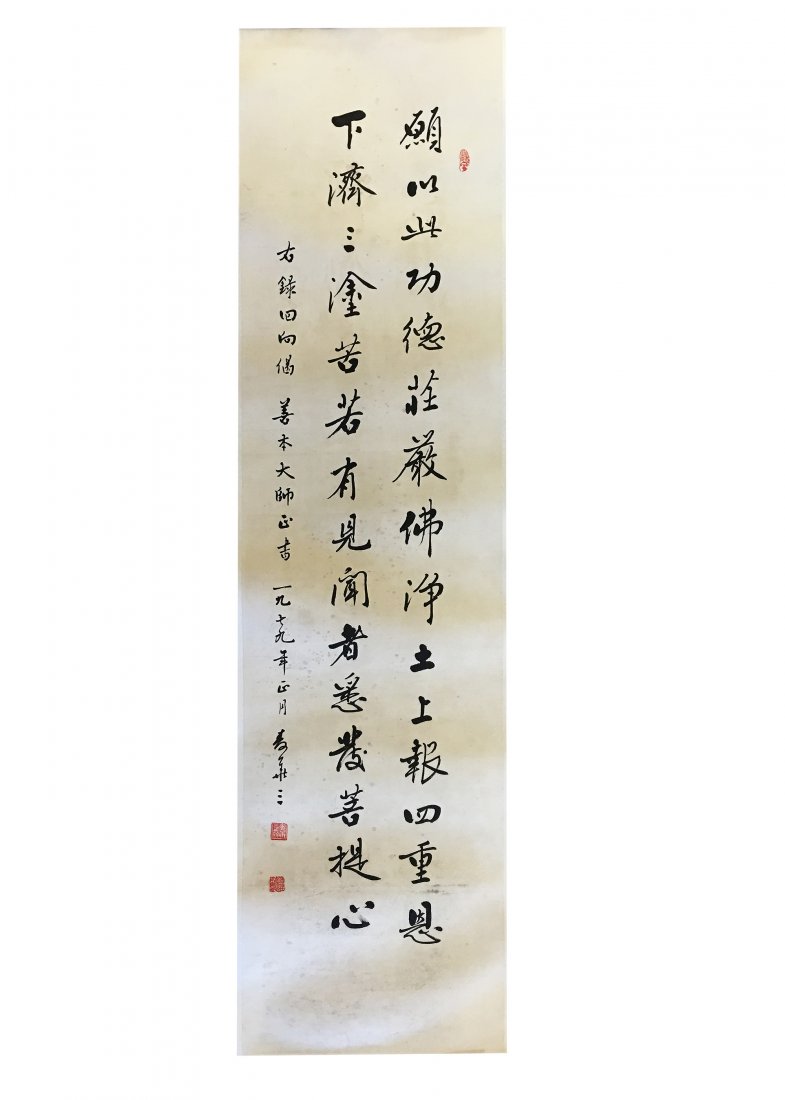 願以此功德莊嚴佛淨土上報四重恩
下濟三塗苦若有見聞者悉發菩提心
右錄回向偈 善本大師正書 一九七九年正月 麥華三